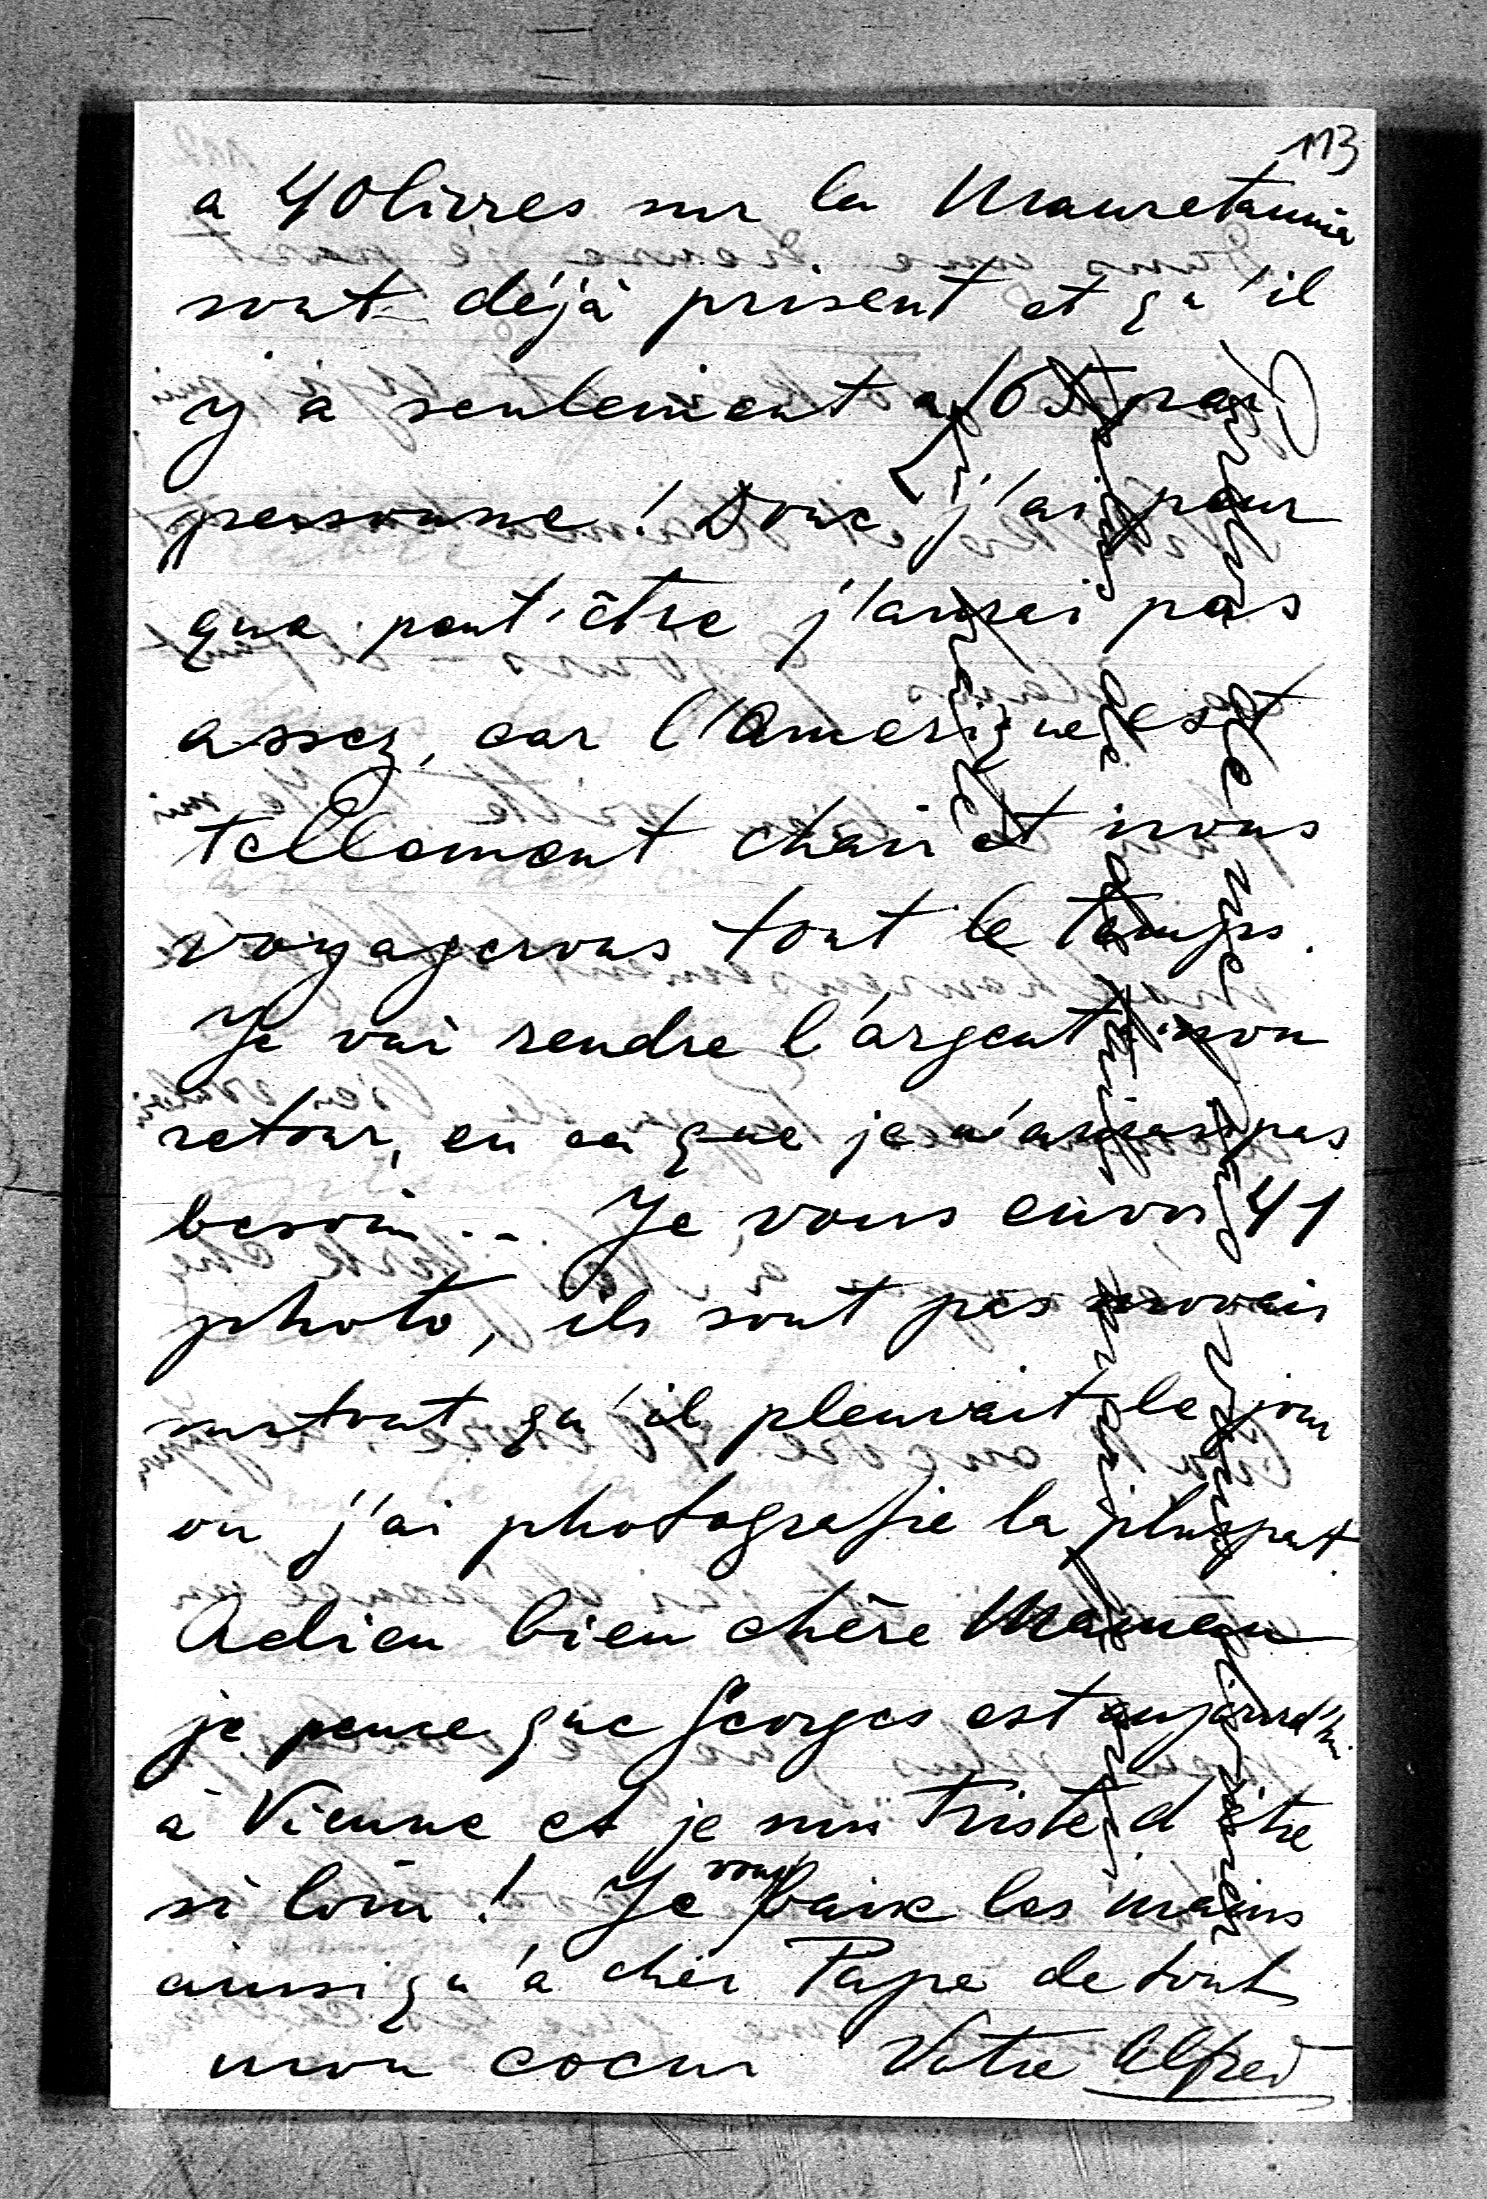 113
a 40 livres sur la Mauretania
sont déjà prisent et qu'il
y a seulement a 65 par
personne! Donc j'ai peur
que peut-être j'aurai pas
assez, car l'Amerique est
tellement chair et nous
voyagerons tout le temps.
Je vai rendre l'argent à mon
retour, en ca que je n'aurai pas
besoin .. Je vous envoi 41
photo, ils sont pas movais
surtout qu'il pleuvait le jour
ou j'ai photografie la pluspart.
Adieu bien chère Maman
je pense que Georges est aujourd'hui
à Vienne et je suis triste d'être
si loin! Je vous baise les mains
ainsi qu'à cher Papa de tout
mon coeur Votre Alfred
Pardon de ne pas